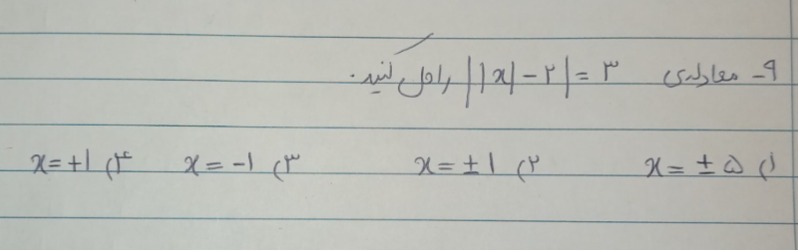 ۹- معادله‌ی ||x| - ۲| = ۳ را حل کنید.
۱) x = ± ۵ ۲) x = ± ۱ ۳) x = -۱ ۴) x = +۱